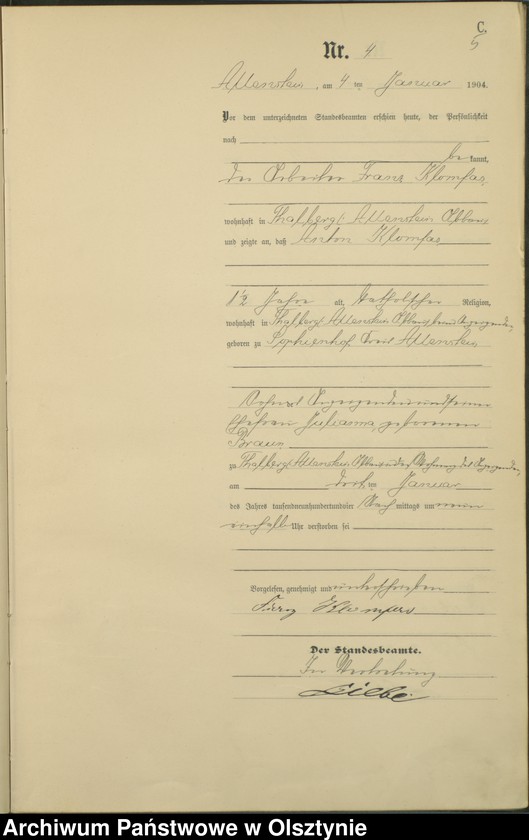 C.
5
Nr. 4
Allenstein, am 4 ten Januar 1904.
Vor dem unterzeichneten Standesbeamten erschien heute, der Persönlichkeit
nach
be kannt,
der Arbeiter Franz Klomfas,
wohnhaft in Thalberg/ Allenstein Abbau
und zeigte an, daß Anton Klomfas
1/2 Jahre alt, katholischer Religion,
wohnhaft in Thalberg/ Allenstein Abbau beim Anzeigenden,
geboren zu Sophienhof Kreis Allenstein
Sohn des Anzeigenden und seiner
Ehefrau Julianna, geborenen
Braun
zu Thalberg/ Allenstein Abbau in der Wohnung des Anzeigenden,
am ten Januar
des Jahres tausendneunhundertundvier Nach mittags um neun
einhalb Uhr verstorben sei
Vorgelesen, genehmigt und unterschrieben
Klomfas
Der Standesbeamte.
In Vertretung
Archiwum Państwowe w Olsztynie